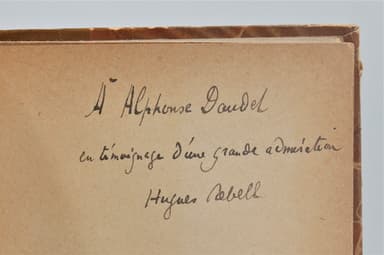 A Alphonse Daudet
en témoignage d'une grande admiration
Hugues Rebell